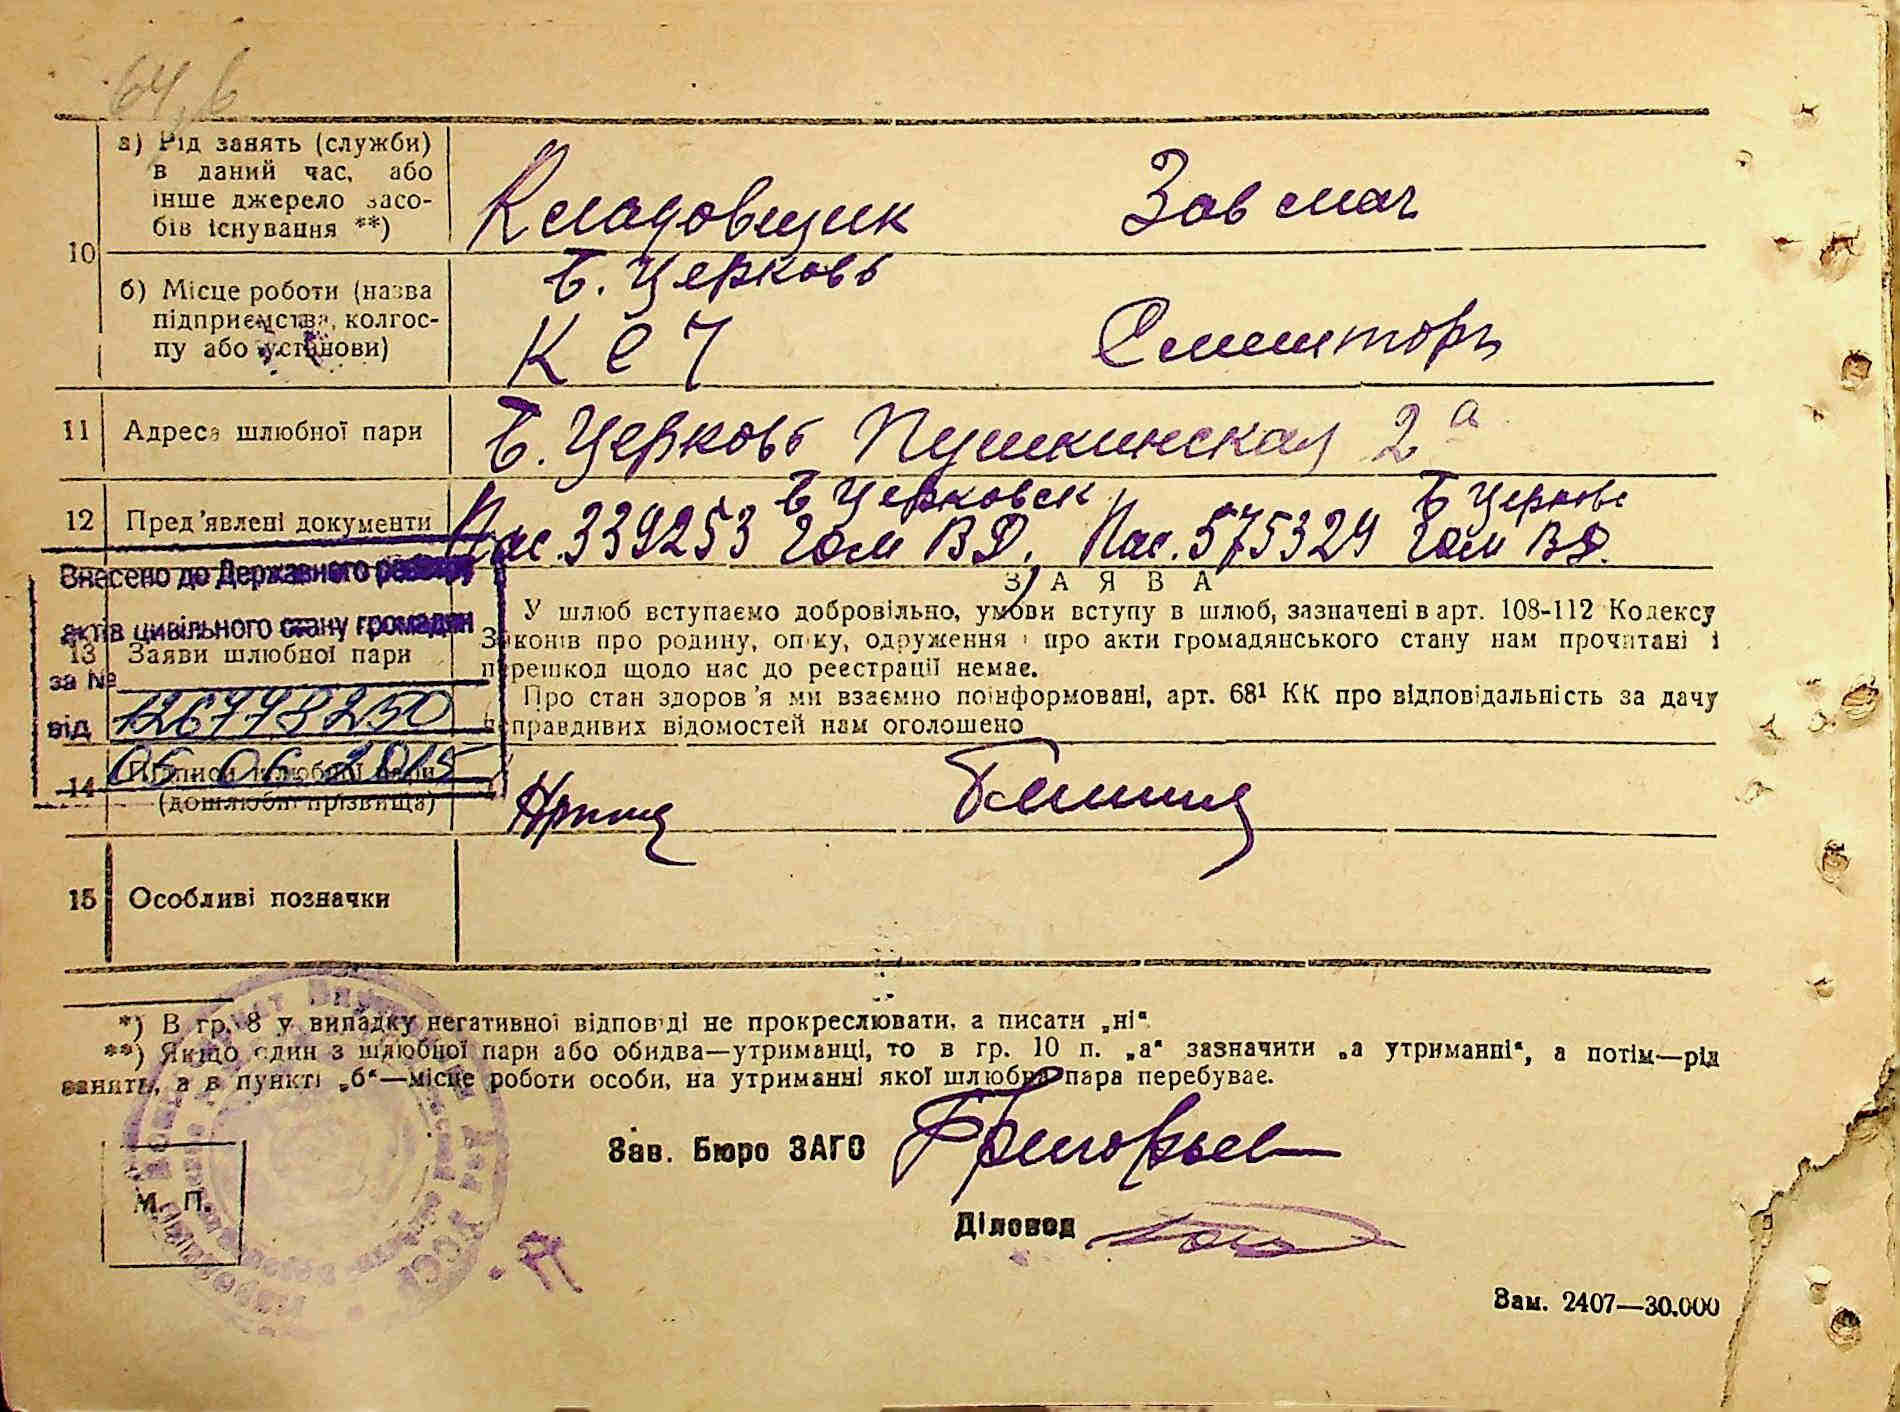 64, б
10
а) Рід занять (служби)
в даний час, або
інше джерело засо-
бів існування **)
Кладовщик
Зав маг
б) Місце роботи (назва
підприємства, колгос-
пу або установи)
Б. Церковь
К Е Ч
Смешторг
11 Адреса шлюбної пари
Б. Церковь Пушкинская 2 а
12 Пред'явлені документи
Пас. 339253 Б Церковск
Гом ВД. Пас. 575329 Б Церковс
Гом ВД.
Внесено до Державного реєстру
актів цивільного стану громадян
за №
126778250
від
06. 06. 2015
13 Заяви шлюбної пари
ЗАЯВА
У шлюб вступаємо добровільно, умови вступу в шлюб, зазначені в арт. 108-112 Кодексу
Законів про родину, опіку, одруження і про акти громадянського стану нам прочитані і
перешкод щодо нас до реєстрації немає.
Про стан здоров'я ми взаємно поінформовані, арт. 68¹ КК про відповідальність за дачу
неправдивих відомостей нам оголошено
14 Підписи шлюбної пари
(дошлюбні прізвища)
15 Особливі позначки
*) В гр. 8 у випадку негативної відповіді не прокреслювати, а писати „ні“.
**) Якщо один з шлюбної пари або обидва—утриманці, то в гр. 10 п. „а“ зазначити „а утриманні“, а потім—рід
занять, а в пункті „б“—місце роботи особи, на утриманні якої шлюбна пара перебуває.
Зав. Бюро ЗАГС Григорьев
Діловод
М. П.
Зам. 2407—30.000